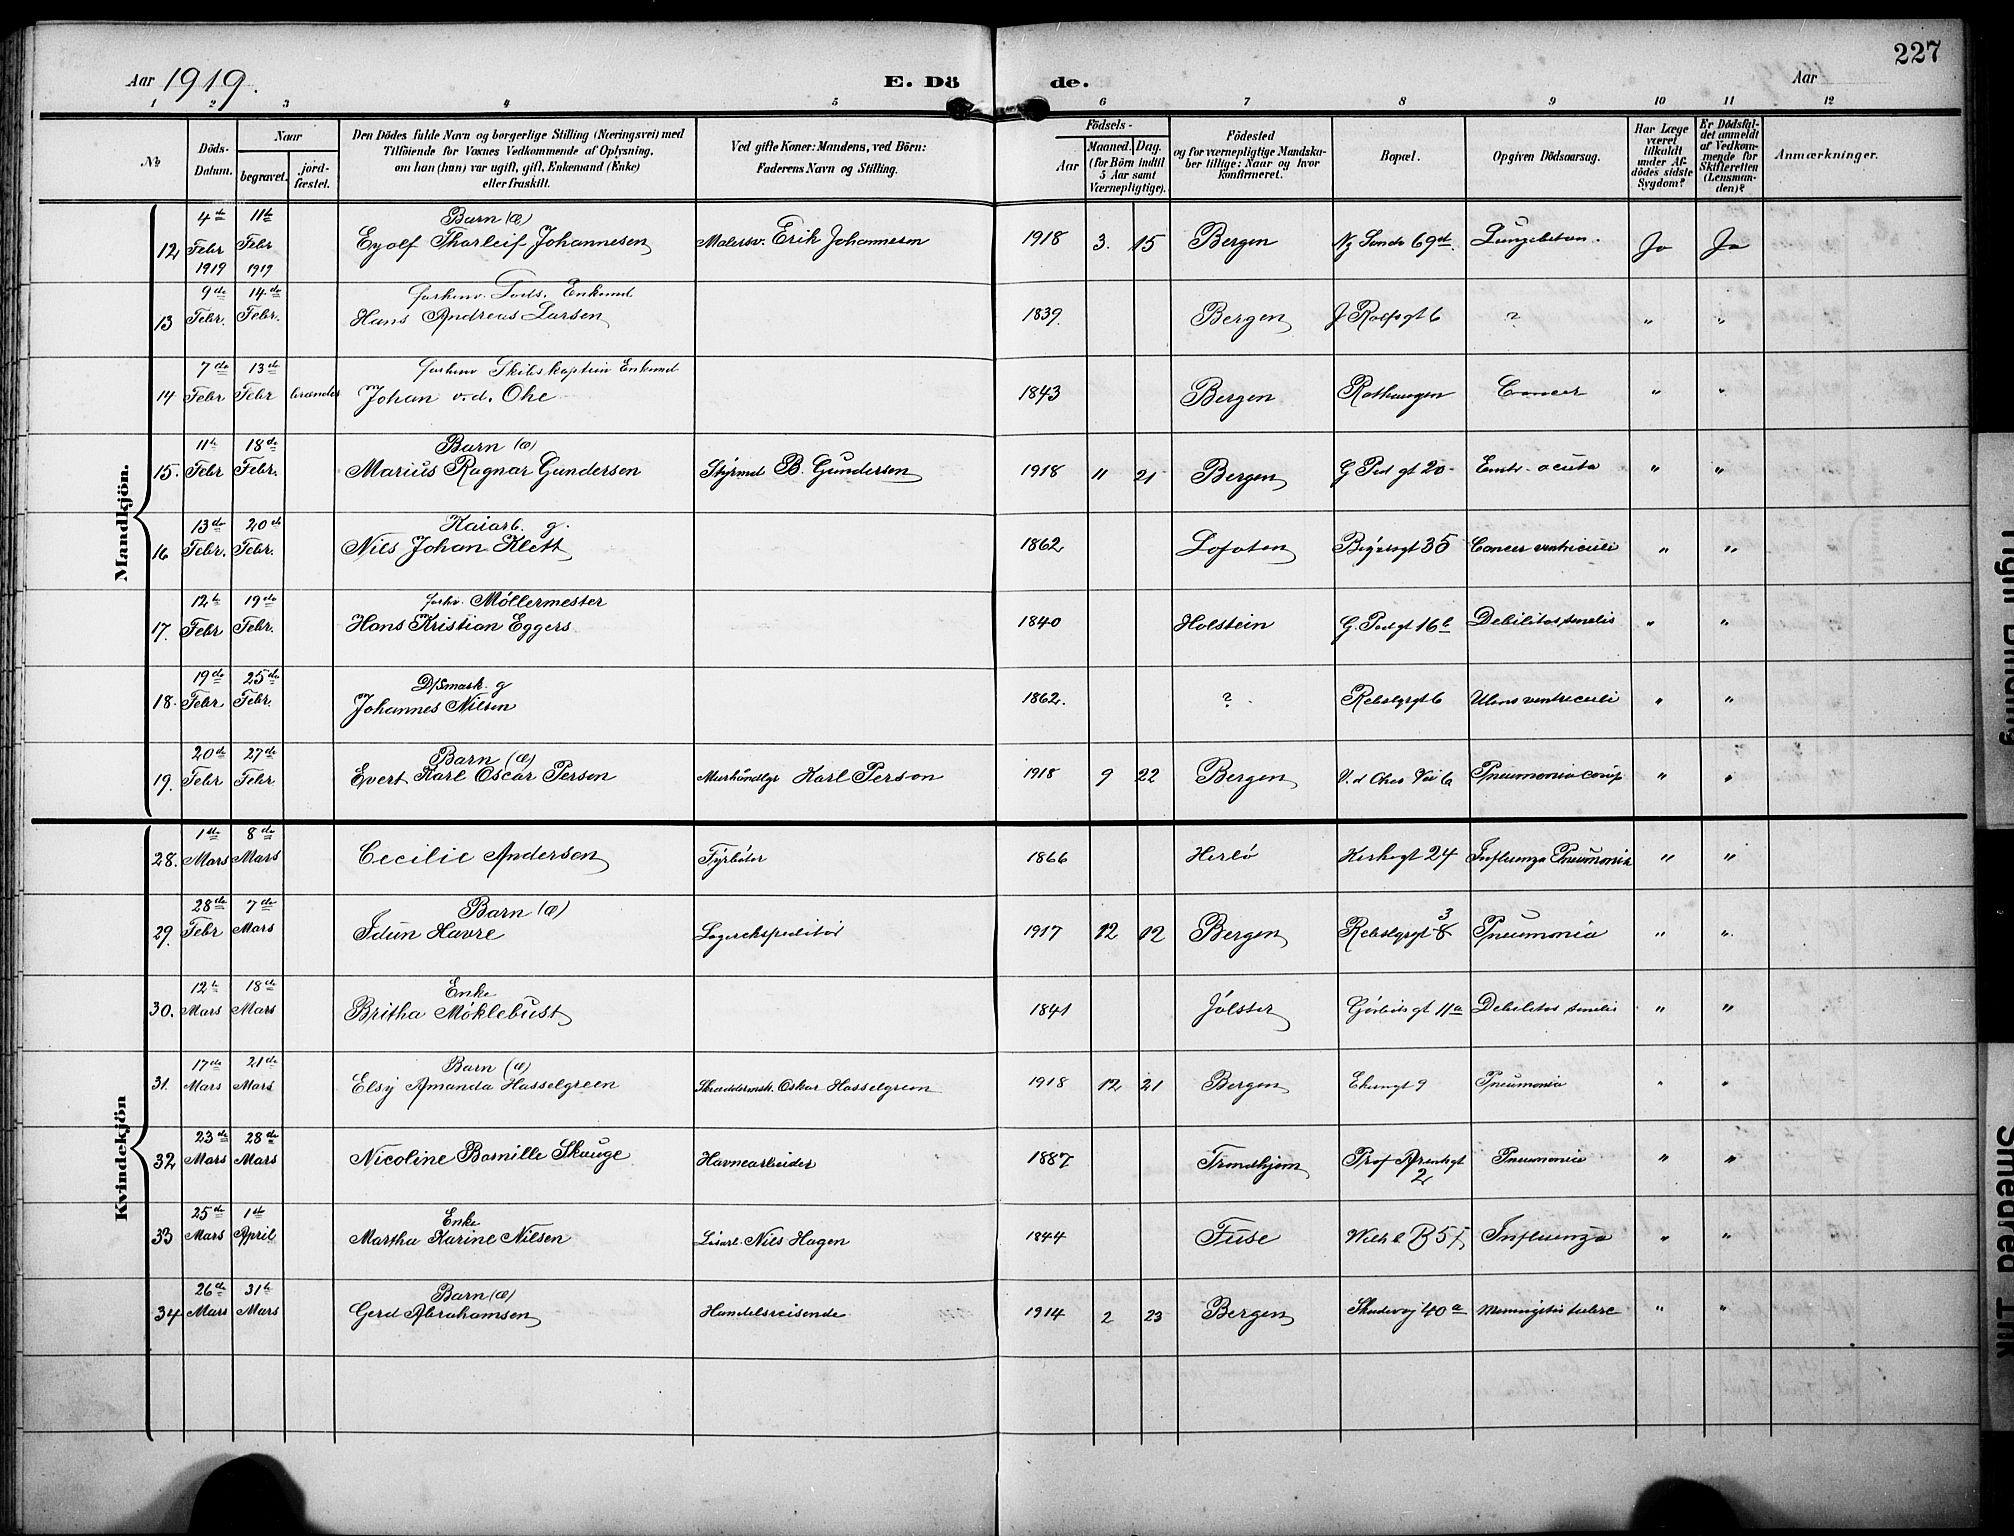 Aar 1919. E. Dö de. Aar 227
1 2 3 4 5 6 7 8 9 10 11 12
No
Döds-Datum.
Naar
begravet.
jord-fæstet.
Den Dödes fulde Navn og borgerlige Stilling (Næringsvei) med
Tilföiende for Voxnes Vedkommende af Oplysning,
om han (hun) var ugift, gift, Enkemand (Enke)
eller fraskilt.
Ved gifte Koner: Mandens, ved Börn:
Faderens Navn og Stilling.
Födsels-
Aar
Maaned. Dag.
(for Börn indtil
5 Aar samt
Værnepligtige).
Födested
og for værnepligtige Mandska-
ber tillige: Naar og hvor
konfirmeret.
Bopæl.
Opgiven Dödsaarsag.
Har Læge
været
tilkaldt
under Af-
dödes sidste
Sygdom?
Er Dödsfal-
det anmeldt
af Vedkom-
mende for
Skifteretten
(Lensman-
den)?
Anmærkninger.
Mandkjön.
12 4de Febr 1919 11te Febr 1919 Barn (æ) Eyolf Tharleif Johannesen Malersv. Erik Johannesen 1918 3. 15 Bergen 69d. Ja Ja
13 9de Febr. 14de Febr. Enkemd Hans Andreas Larsen 1839. Bergen 6 ? " "
14 7de Febr 13de Febr Skibskaptein Enkemd Johan v.d. Ohe 1843 Bergen Rothaugen Cancer " "
15. 11te Febr 18de Febr. Barn (æ) Marius Ragnar Gundersen Styrmd B. Gundersen 1918 11 21 Bergen G Ped gt 20 acuta " "
16 13de Febr. 20de Febr. Kaiarb. g. Nils Johan Klett 1862 Lofoten 35 Cancer ventriculi " "
17. 12te Febr 19de Febr. forhv. Møllermester Hans Kristian Eggers 1840 Holstein G. Ped gt 16b Debilitas senilis " "
18. 19de Febr 25de Febr. D/Smask. g Johannes Nilsen 1862. ? Rebslgrgt 6 Ulcus ventriculi " "
19. 20de Febr 27de Febr Barn (æ) Evert Karl Oscar Person Murhåndlgr Karl Person 1918 9 22 Bergen V. d Ohes Vei 6 Pneumonia croup " "
Kvindekjön
28. 1ste Mars 8de Mars Cecilie Andersen Fyrbøter 1866 Herlø Kirkegt 24 Influenza Pneumonia " "
29. 28de Febr 7de Mars Barn (æ) Idun Havre Lagerekspeditør 1917 12 12 Bergen Rebslgrgt 8 3 Pneumonia " "
30. 12te Mars 18de Mars Enke Britha Møklebust 1841 Jølster 11a Debilitas senilis " "
31. 17de Mars 21de Mars Barn (æ) Elsy Amanda Hasselgreen Skræddermstr. Oskar Hasselgreen 1918 12 21 Bergen 9 Pneumonia " "
32 23de Mars 28de Mars Nicoline Skauge Havnearbeider 1887 Trondhjem Prof 2 Pneumonia " "
33 25de Mars 1ste April Enke Martha Karine Nilsen Nils Hagen 1844 Fuse Influenza " "
34 26de Mars 31te Mars Barn (æ) Gerd Abrahamsen Handelsreisende 1914 2 23 Bergen 40a " "
Tight Binding
Smeared Ink